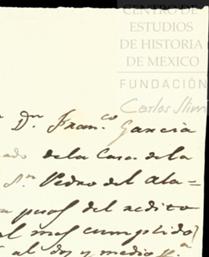 CENTRO DE
ESTUDIOS
DE HISTORIA
DE MEXICO
FUNDACIÓN
Carlos Slim
Dn. Franco. Garcia
de la Casa de la
Sn. Pedro del Ala-
pues del redito
al mas cumplido
al dos y medio pr.